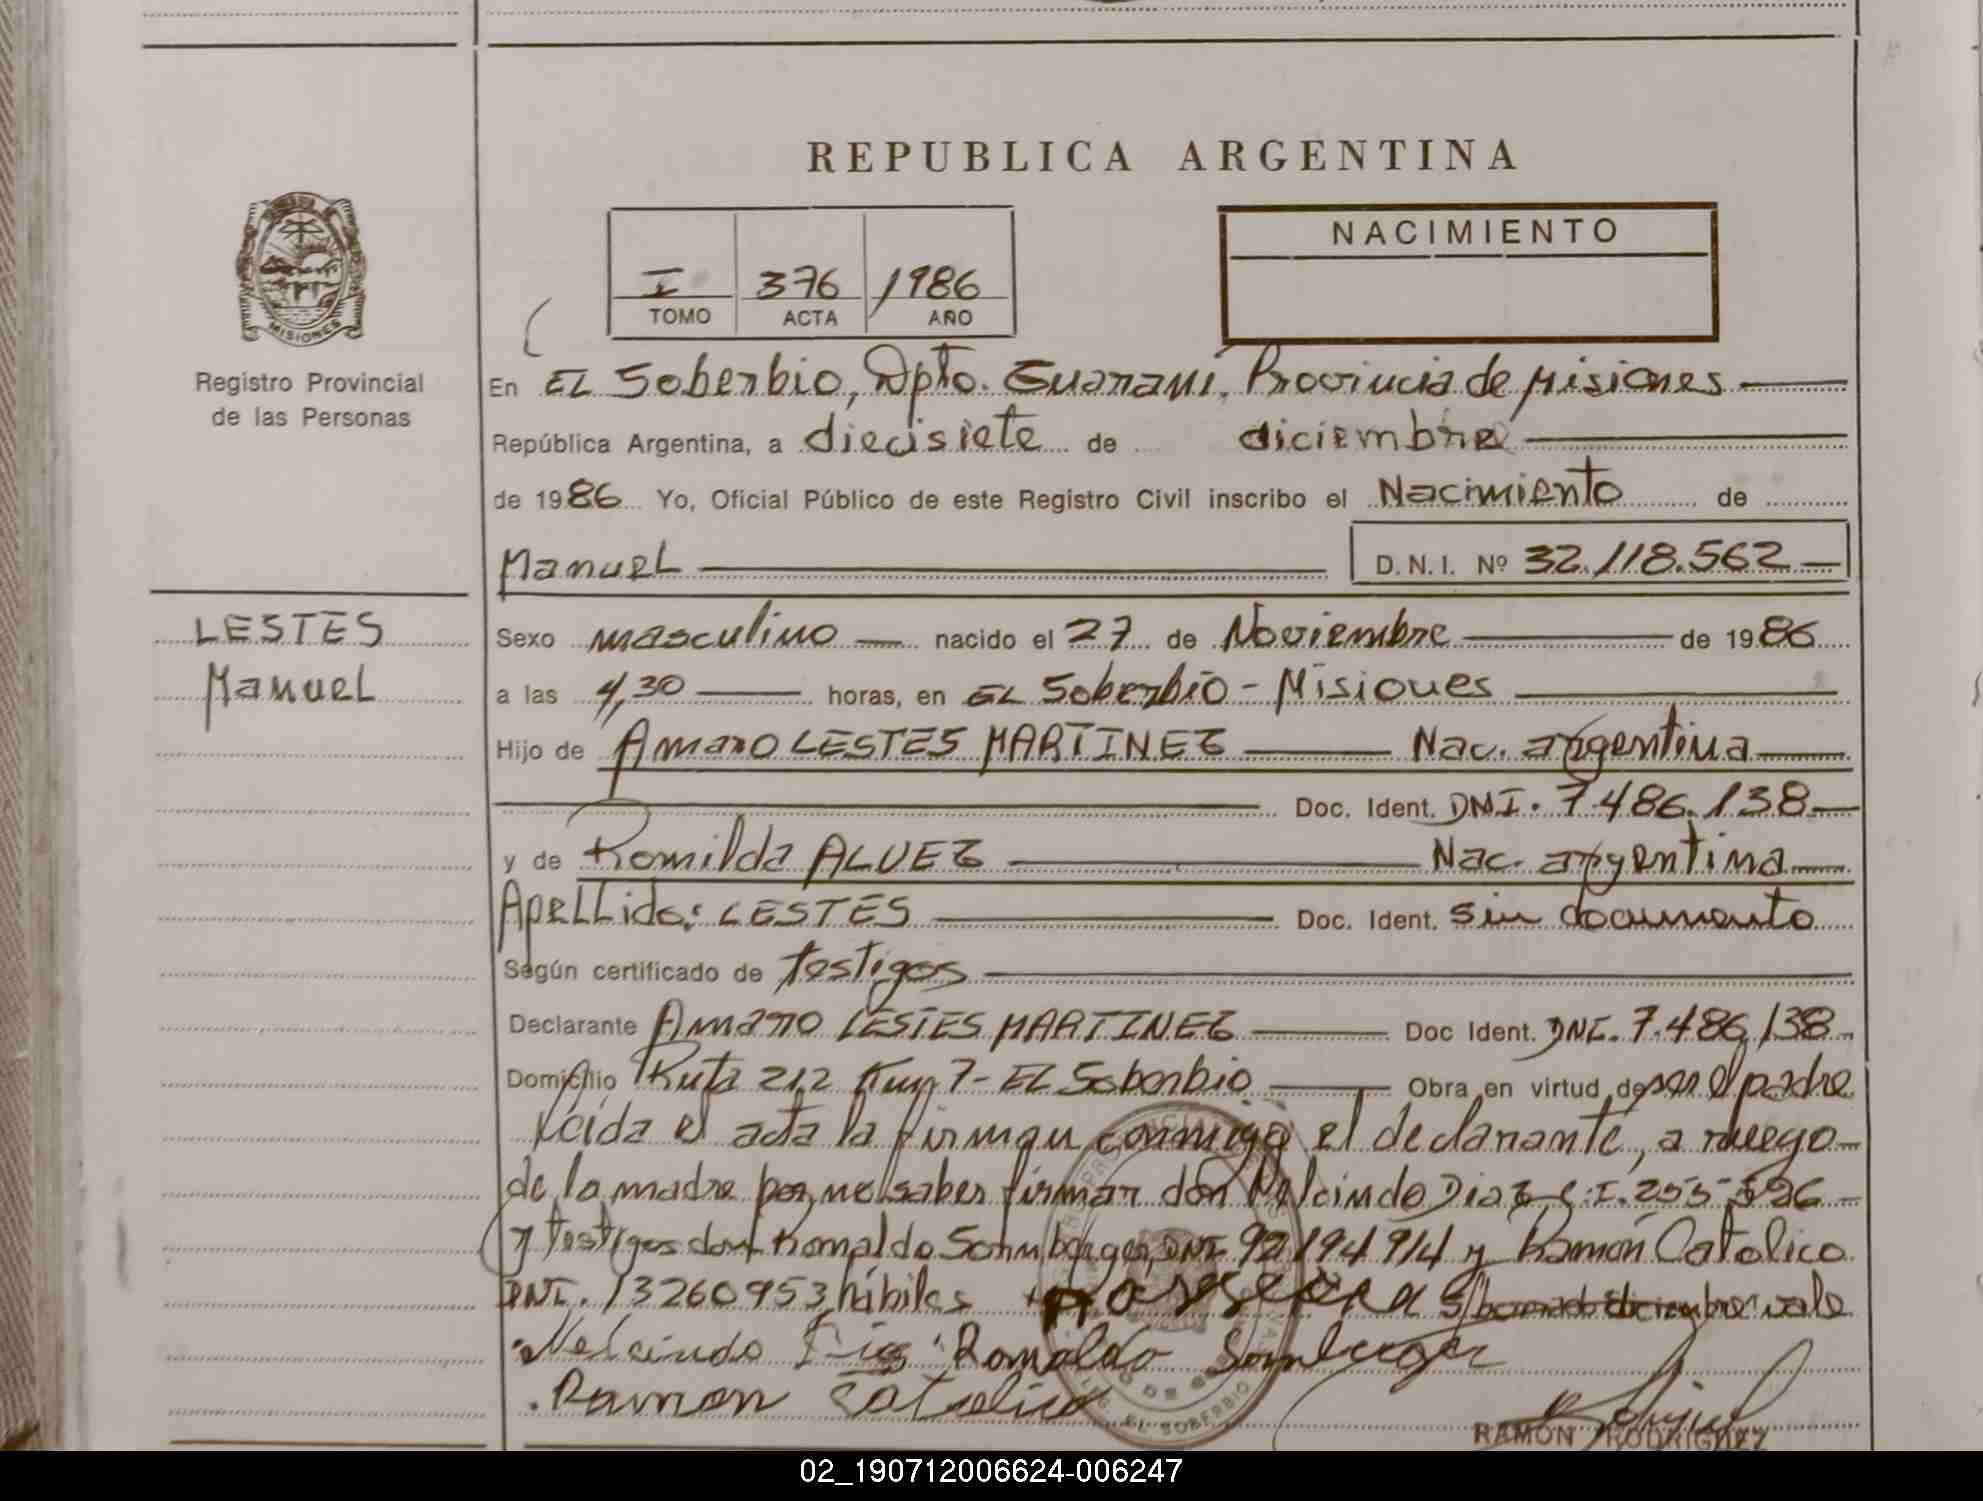 REPUBLICA ARGENTINA
NACIMIENTO
I 376 1986
TOMO ACTA AÑO
MISIONES
Registro Provincial
de las Personas
En EL Soberbio, Dpto. Guarani, Provincia de Misiones
República Argentina, a diecisiete de diciembre
de 1986 Yo, Oficial Público de este Registro Civil inscribo el Nacimiento de
Manuel D.N.I. Nº 32.118.562
LESTES
Manuel
Sexo masculino nacido el 27 de Noviembre de 1986
a las 4,30 horas, en EL Soberbio - Misiones
Hijo de Amaro LESTES MARTINEZ Nac. argentina
Doc. Ident. DNI. 7.486.138
y de Romilda ALVEZ Nac. argentina
Apellido: LESTES Doc. Ident. sin documento
Según certificado de testigos
Declarante Amaro LESTES MARTINEZ Doc Ident. DNI. 7.486.138
Domicilio Ruta 212 Km 7 - EL Soberbio Obra en virtud de ser el padre
Leída el acta la firman conmigo el declarante, a ruego
de la madre por no saber firmar don Nelcindo Diaz C.I. 255-596
y testigos don Romaldo DNI 92194914 y Ramón Catolico
DNI. 13260953 hábiles diciembre: vale
Nelcindo Romaldo
Ramon Catolico
EL SOBERBIO
RAMON RODRIGUEZ
02_190712006624-006247